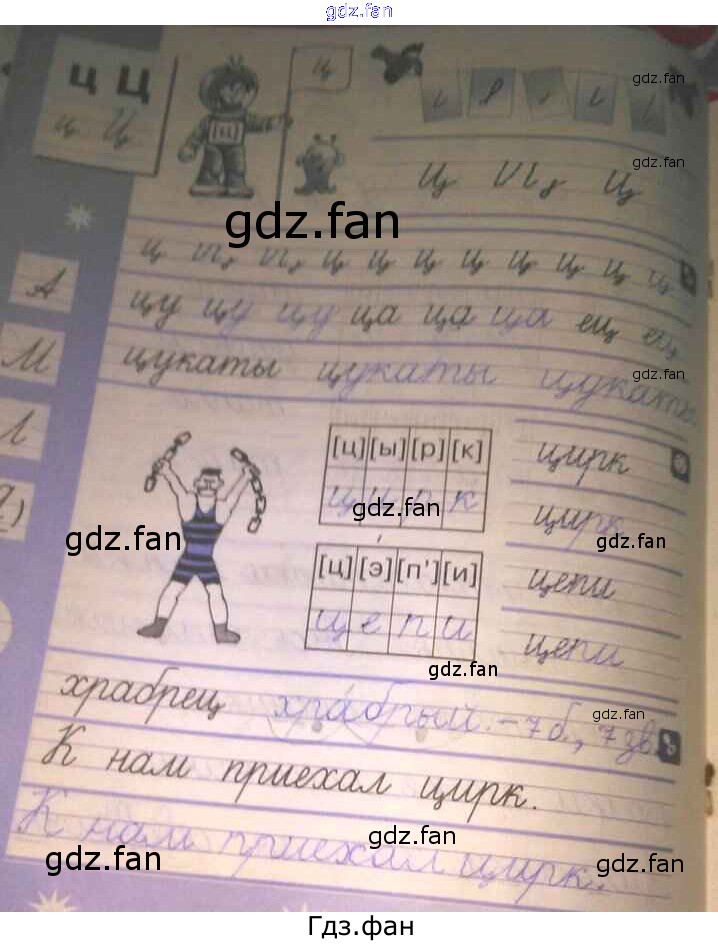 gdz.fan
ц Ц
ц
ц Ц
[ц]
gdz.fan
ц ц
gdz.fan
gdz.fan
ц ц ц ц ц ц ц ц ц
А
цу цу цу ца ца ца ец ец
М
цукаты цукаты цукаты
gdz.fan
Л
[ц] [ы] [р] [к]
цирк
ц и р к
gdz.fan
цирк
gdz.fan
gdz.fan
[ц] [э] [п'] [и]
цепи
gdz.fan
ц е п и
цепи
gdz.fan
храбрец храбрый - 7 б, 7 зв.
gdz.fan
К нам приехал цирк.
К нам приехал цирк.
gdz.fan
gdz.fan
gdz.fan
Гдз.фан